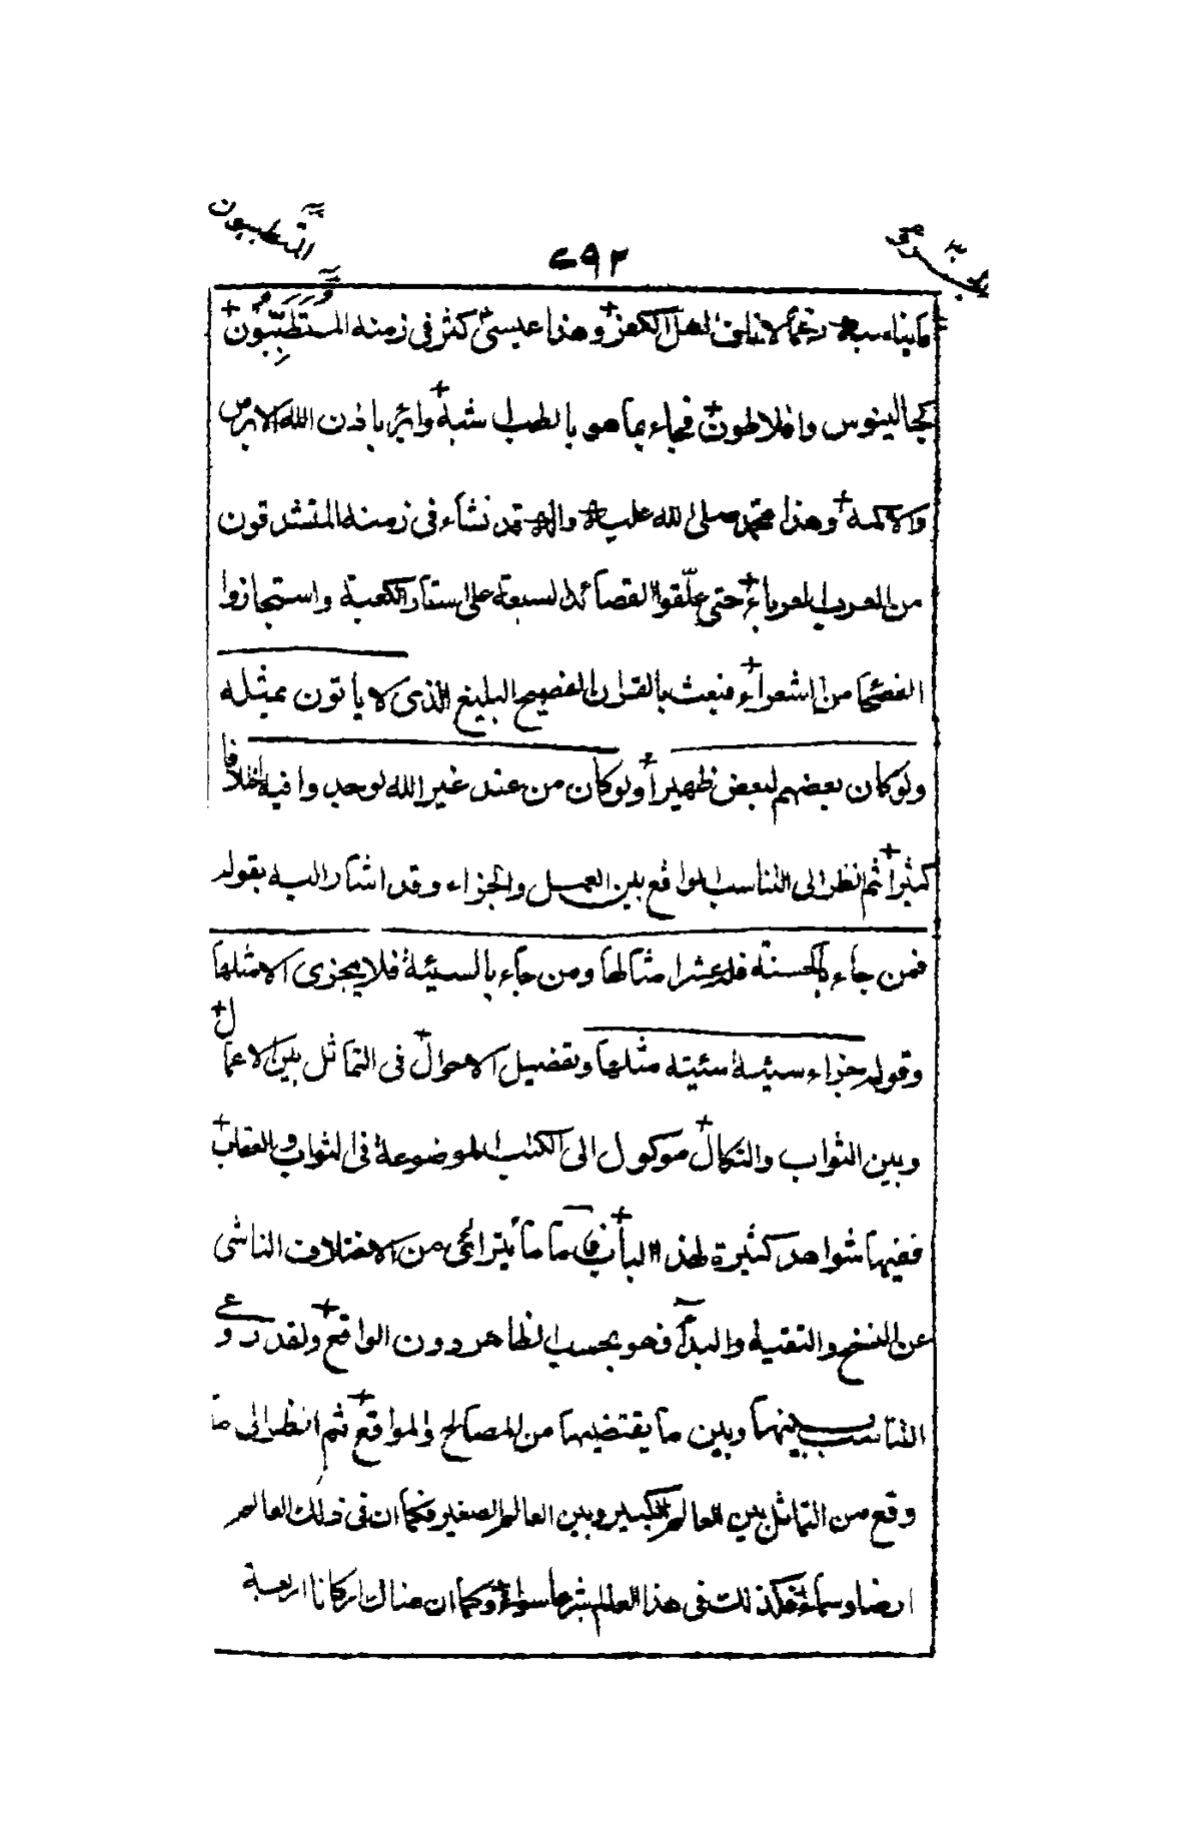 المتطببون
٤٩٢
ما يناسبه رغما لاناف اهل الكفر وهذا عيسى كثر فى زمنه المتطببون
كجالينوس وافلاطون فجاء بما هو بالطب اشبه وابرء باذن الله الابرص
والاكمه وهذا محمد صلى الله عليه واله قد نشاء فى زمنه المتشدقون
من العرب العرباء حتى علقوا القصائد السبعة على استار الكعبة واستجازوا
الفصحا من الشعراء فبعث بالقران الفصيح البليغ الذى لا ياتون بمثله
ولو كان بعضهم لبعض ظهيرا ولو كان من عند غير الله لوجدوا فيه اختلافا
كثيرا ثم انظر الى التناسب الواقع بين العمل والجزاء وقد اشار اليه بقوله
فمن جاء بالحسنة فله عشر امثالها ومن جاء بالسيئة فلا يجزى الا مثلها
وقوله جزاء سيئة سيئة مثلها وتفضيل الاحوال فى التماثل بين الاعمال
وبين الثواب والنكال موكول الى الكتب الموضوعة فى الثواب والعقاب
ففيها شواهد كثيرة لهذا الباب فاما ما يترائى من الاختلاف الناشى
عن النسخ والتقية والبداء فهو بحسب الظاهر دون الواقع ولقد روعى
التناسب بينها وبين ما يقتضيها من المصالح والمواقع ثم انظر الى ما
وقع من التماثل بين العالم الكبير وبين العالم الصغير فكما ان فى ذلك العالم
ارضا وسماء فكذلك فى هذا العالم شرعا سواء وكما ان هناك اركانا اربعة